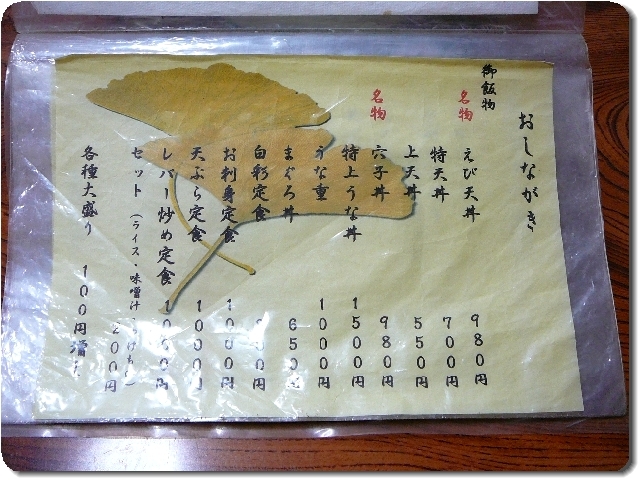 おしながき
御飯物
名物 えび天丼 980円
特天丼 700円
上天丼 550円
名物 穴子丼 980円
特上うな丼 1500円
うな重 1000円
まぐろ丼 650円
日彩定食 円
お刺身定食 1000円
天ぷら定食 1000円
レバー炒め定食 1000円
セット（ライス・味噌汁 ） 200円
各種大盛り 100円増し